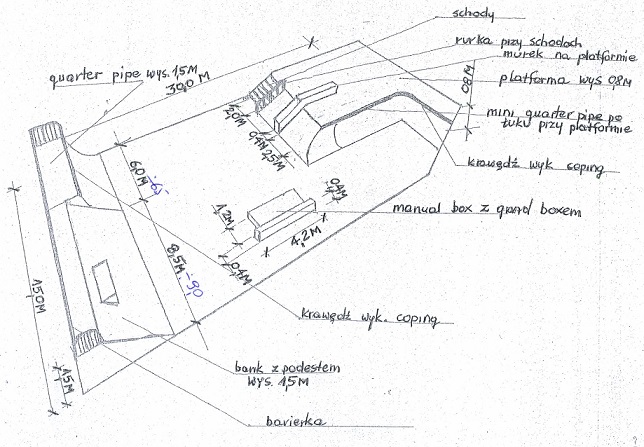 schody
rurka przy schodach
murek na platformie
platforma wys 0,8M
0,8M
mini quarter pipe po
łuku przy platformie
krawędź wyk coping
quarter pipe wys. 1,5M
30,0 M
2,0M
0,4M
2,5M
6,0M
0,4M
1,2M
manual box z grind boxem
4,2M
0,4M
8,5M
15,0M
krawędź wyk. coping
1,5M
bank z podestem
WYS. 1,5M
barierka